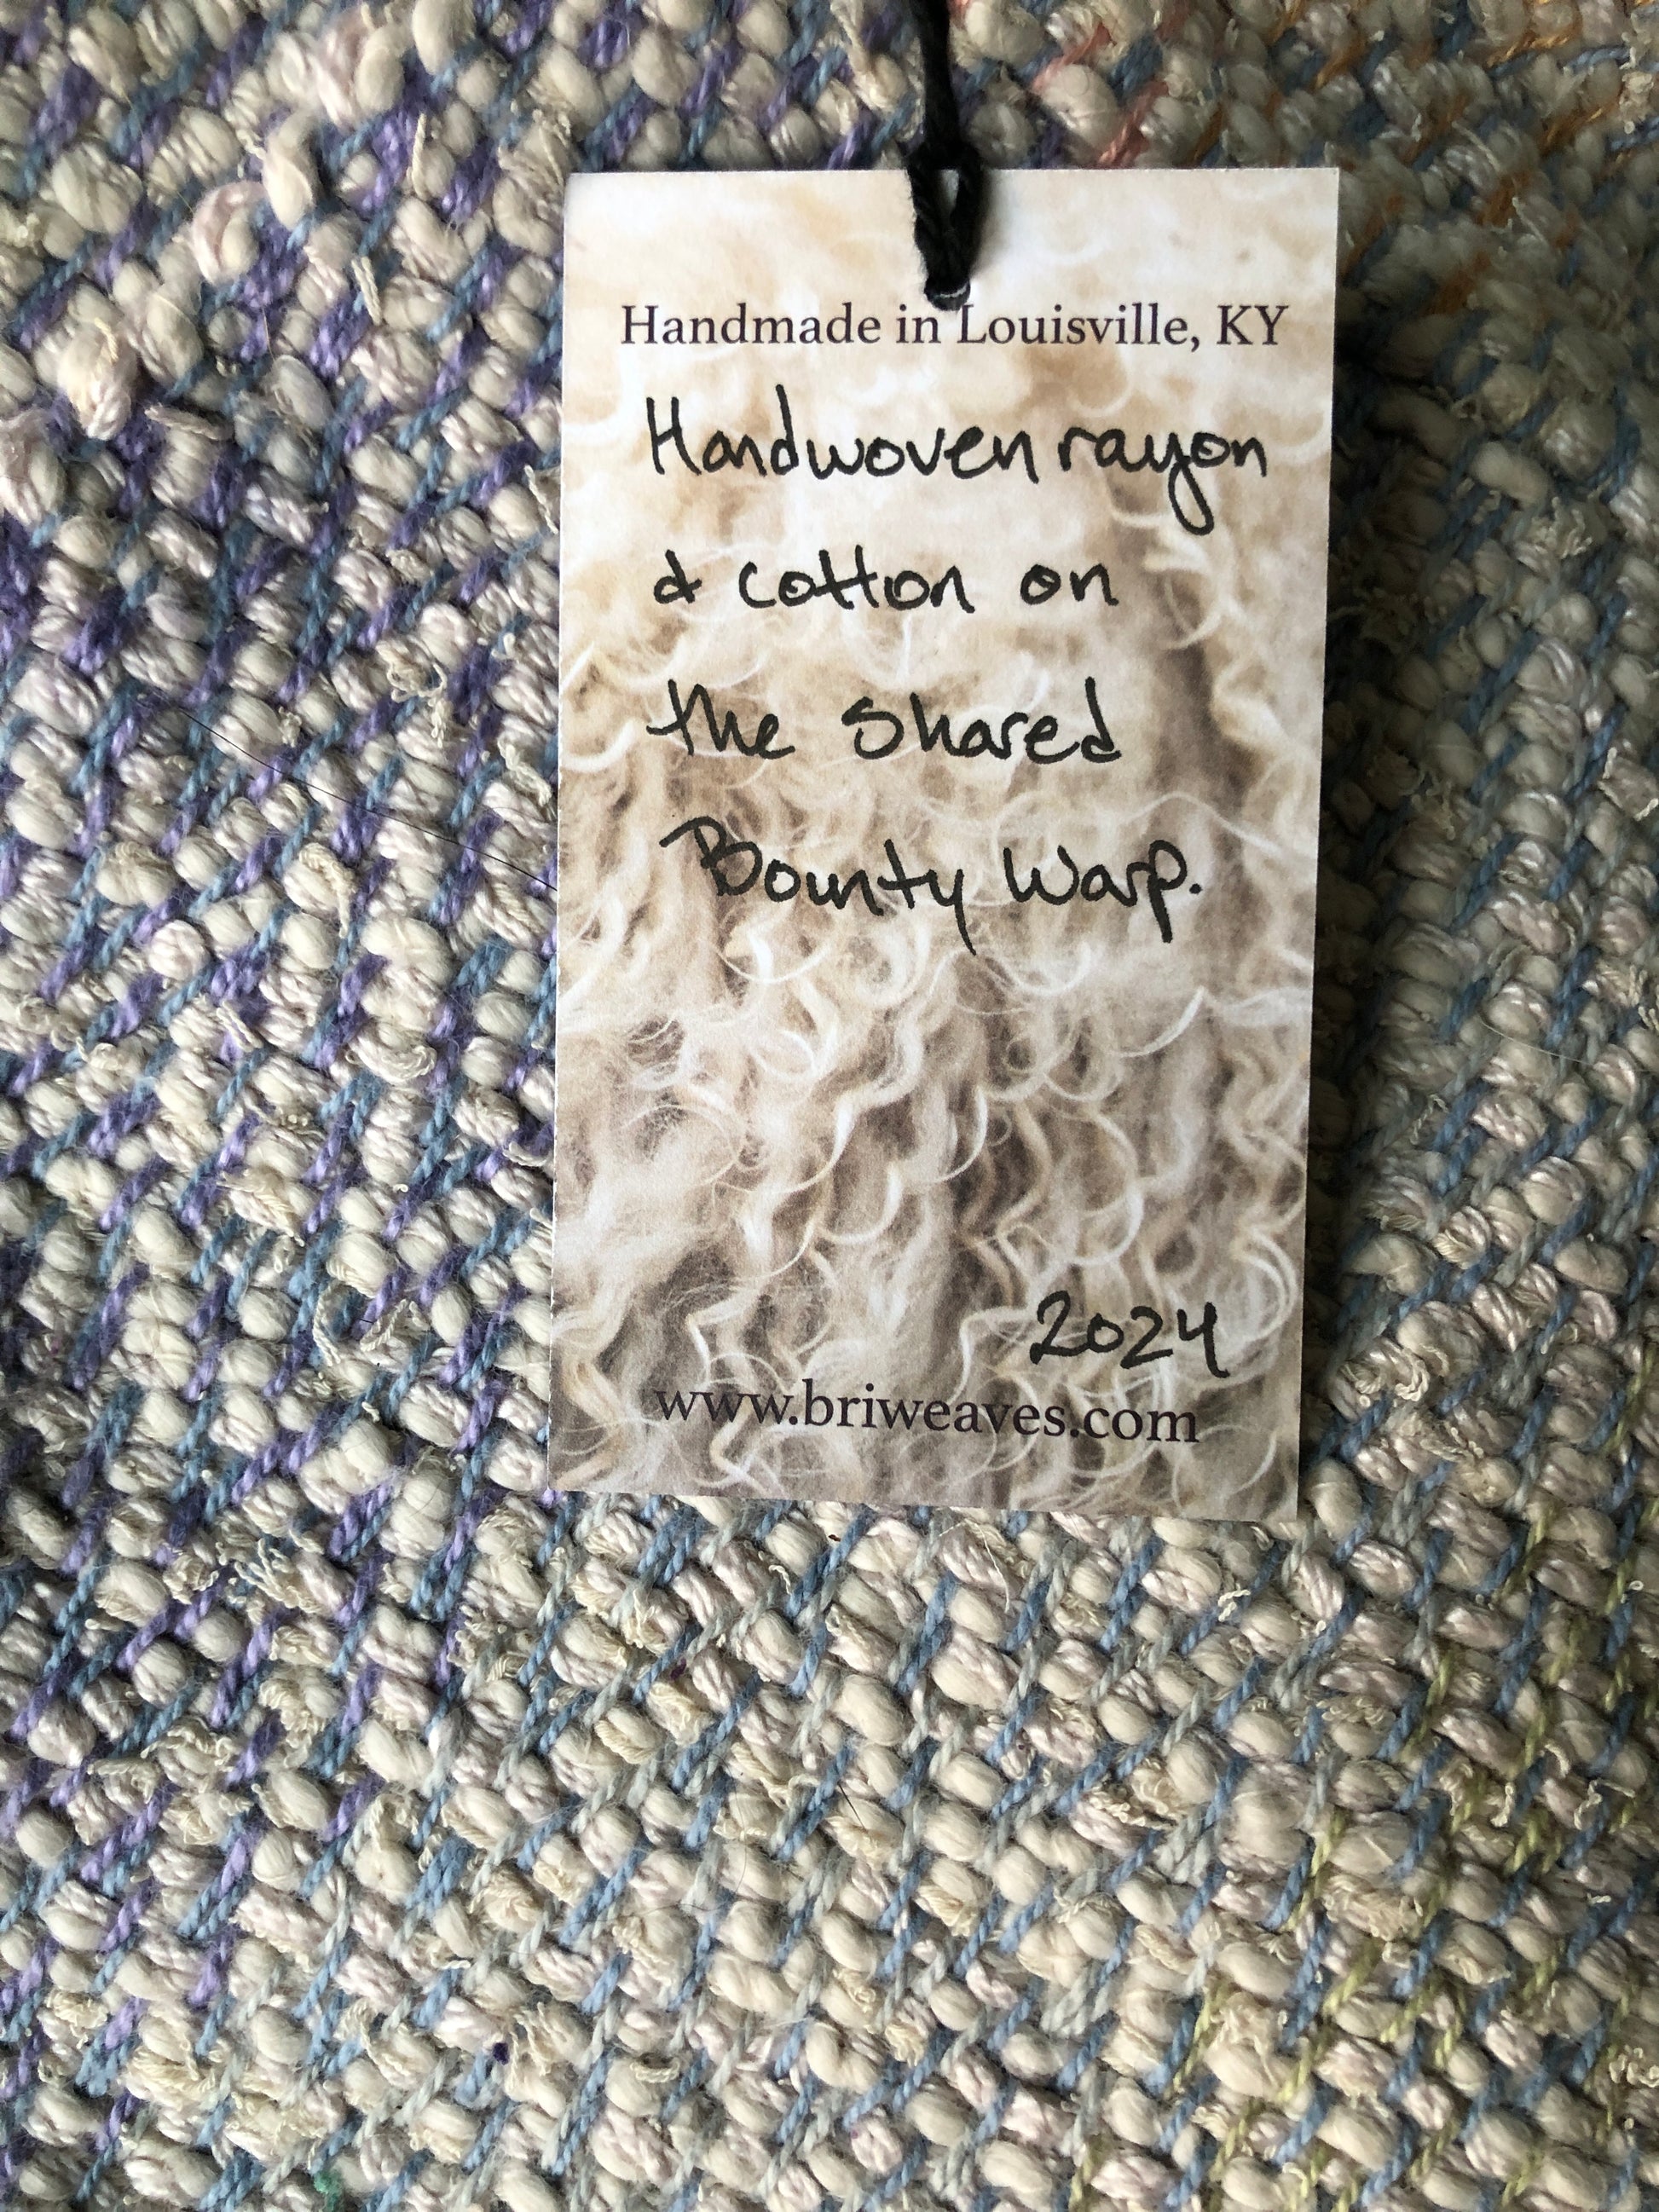 Handmade in Louisville, KY
Handwoven rayon
& cotton on
the shared
Bounty Warp.
2024
www.briweaves.com